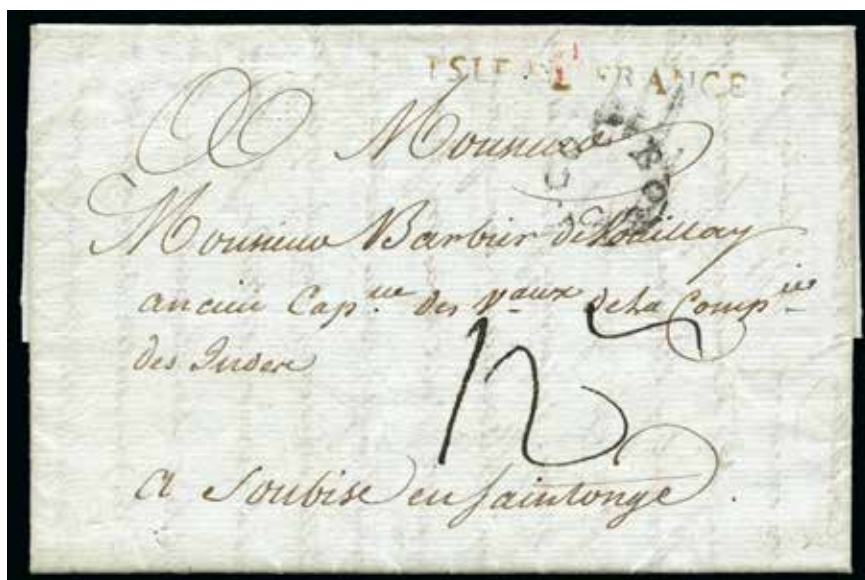 ISLE DE FRANCE
Monsieur
Monsieur Barbier
ancien Cap.ne des V.aux de la Comp.ie
des Indes
12
a Soubise en Saintonge.